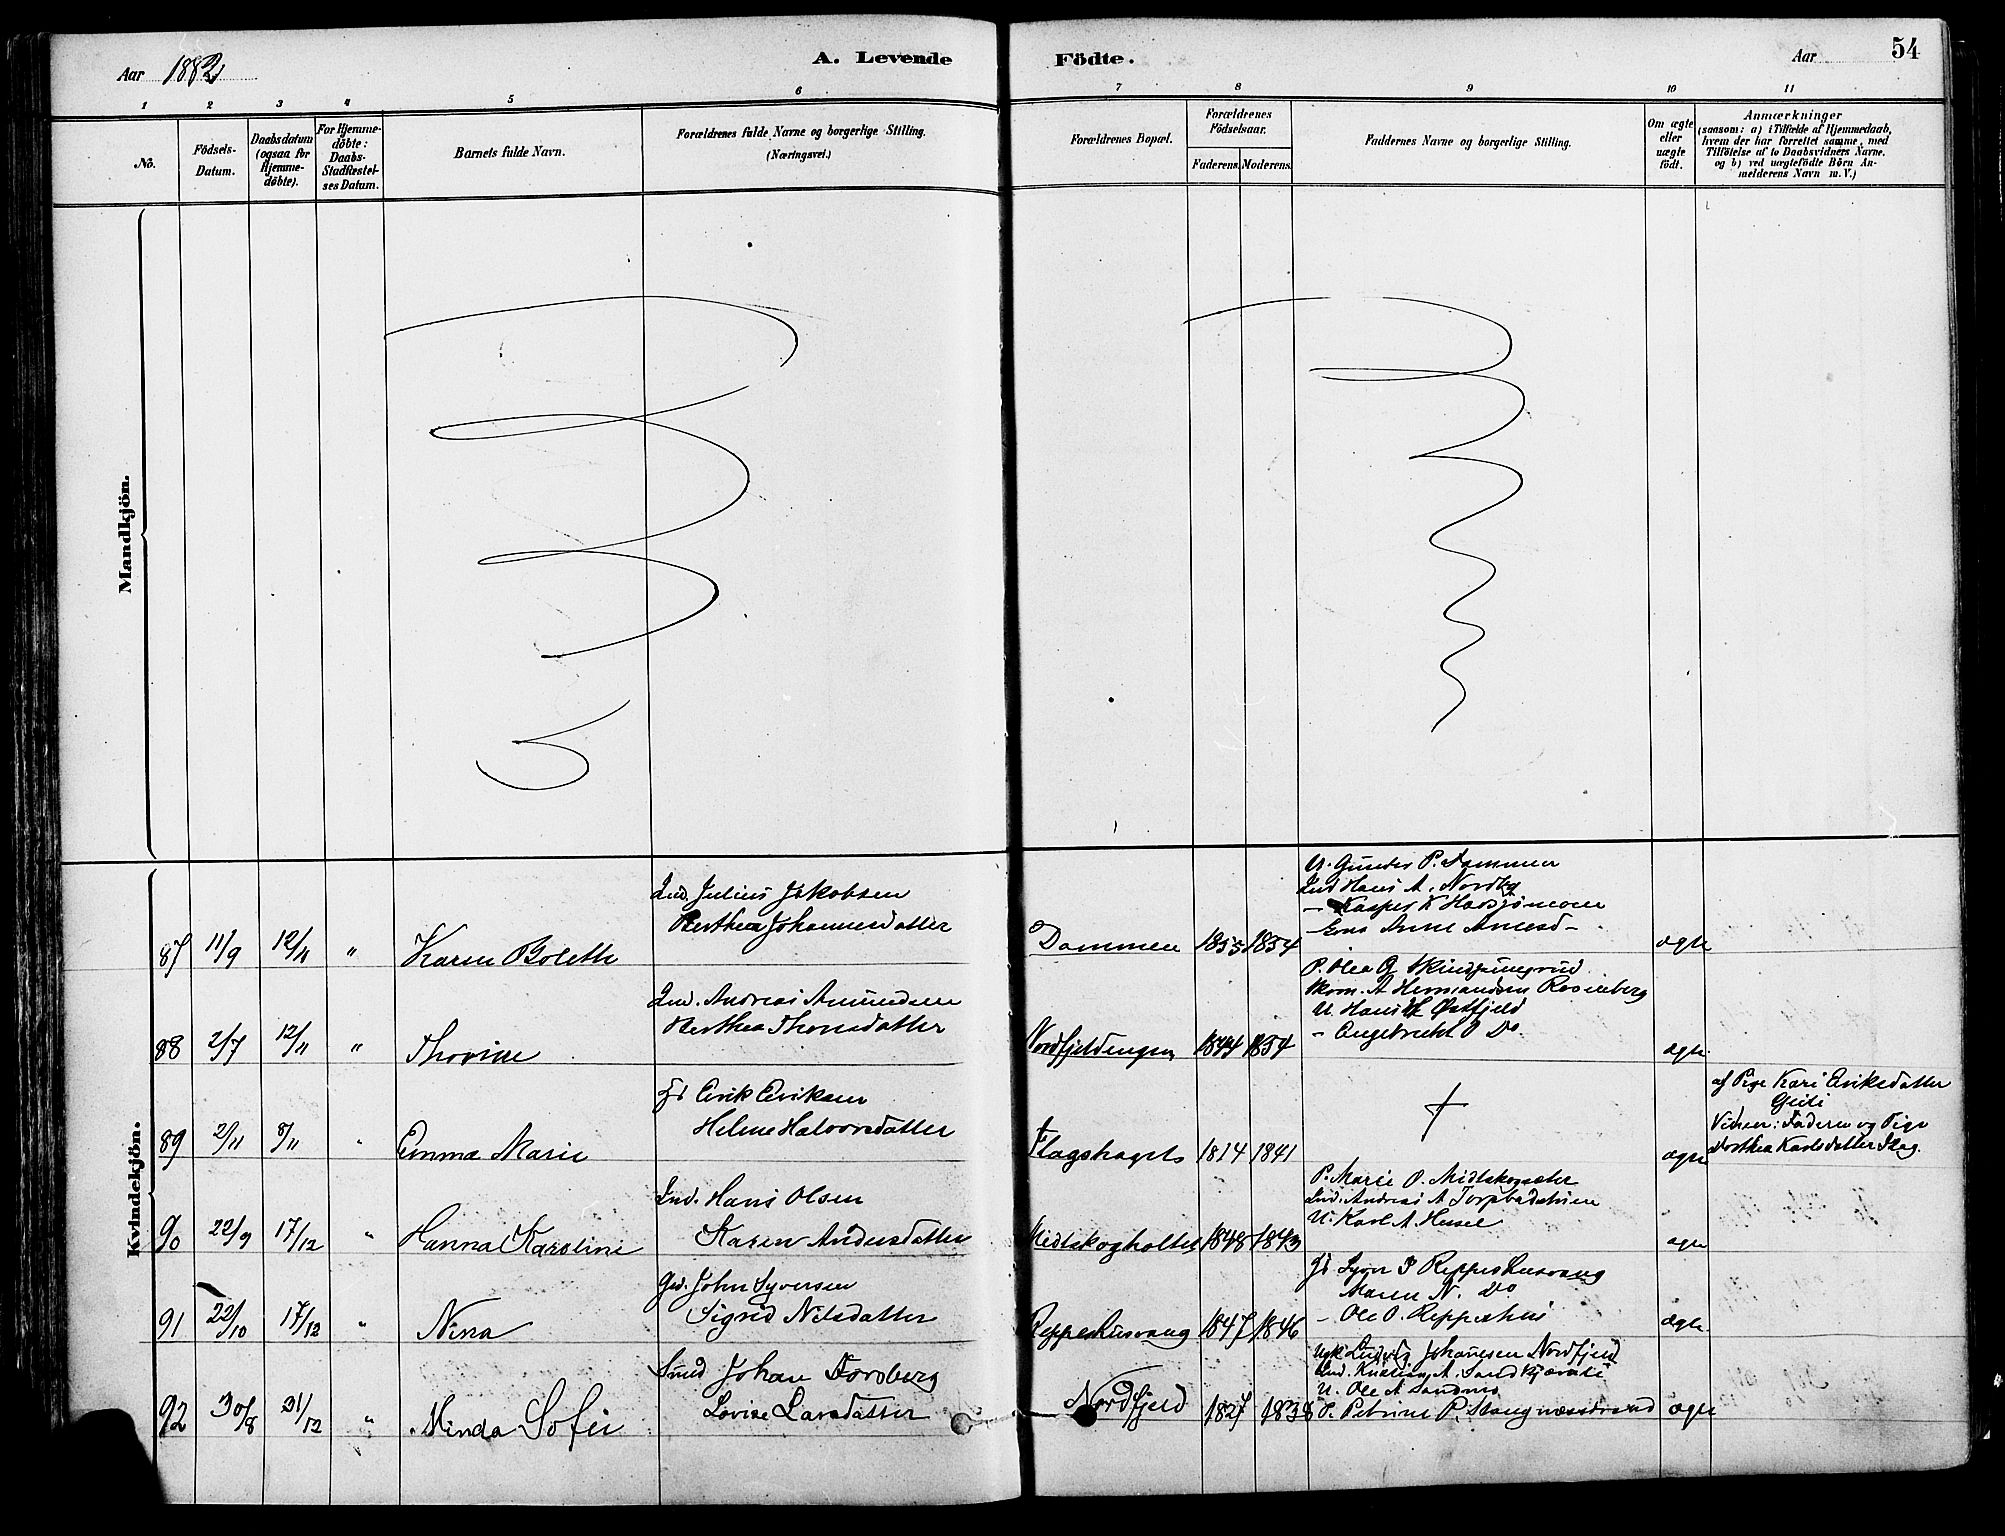 Aar 1882
A. Levende Födte.
Aar
54
1 2 3 4 5 6 7 8 9 10 11
No.
Födsels-
Datum.
Daabsdatum
(ogsaa for
Hjemme-
döbte).
For Hjemme-
döbte:
Daabs-
Stadfæstel-
ses Datum.
Barnets fulde Navn.
Forældrenes fulde Navne og borgerlige Stilling.
(Næringsvei.)
Forældrenes Bopæl.
Forældrenes
Födselsaar.
Faderens. Moderens.
Faddernes Navne og borgerlige Stilling.
Om ægte
eller
uægte
födt.
Anmærkninger
(saasom: a) i Tilfælde af Hjemmedaab,
hvem der har forrettet samme, med
Tilföielse af to Daabsvidners Navne,
og b) ved uægtefödte Börn An-
melderens Navn m. V.)
Mandkjön.
Kvindekjön.
87 11/9 12/11 " Karen Boleth
Ind. Julius Jakobsen
Berthea Johannesdatter
Dammen 1855 1854
U. Gunder P. Dammen
Ind Hans A. Nordby
- Kasper K
- Anne Amund -
ægte
88 2/7 12/11 " Thorine
Ind. Andreas Amundsen
Berthea Thorsdatter
Nordfjeldengen 1844 1854
P. Olea
A Hermandsen Rosenberg
U. Hans Østfjeld
- Engebrecht O Do
ægte.
89 2/11 8/11 " Emma Marie
Erik Eriksen
Helene Halvorsdatter
Flagshaget 1814 1841
†
ægte
af Pige Kari Eriksdatter
Vidner: Faderen og Pige
Dorthea Karlsdatter Flag.
90 22/9 17/12 " Hanna Karoline
Ind. Hans Olsen
Karen Andersdatter
Midtskogholtet 1848 1843
P. Marie O. Midtskogsæter
Ind. Andreas A
U. Karl A.
ægte
91 22/10 17/12 " Nina
John Syversen
Sigrid Nilsdatter
Reppeshusvang 1847 1846
Syver J Reppeshusvang
Maren N. Do
- Ole O. Reppeshus
ægte
92 30/8 31/12 " Minda Sofie
Smed Johan Forsberg
Lovise Larsdatter
Nordfjeld 1827 1838
Ludvig Johannesen Nordfjeld
Ind. Kristian A.
U. Ole A Sandnes
P. Petrine P. Stangnæsstrand
ægte